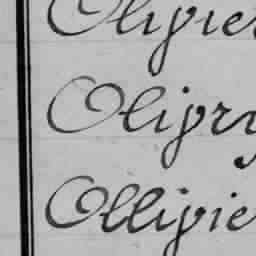 Olipier
Olipry
Ollipie